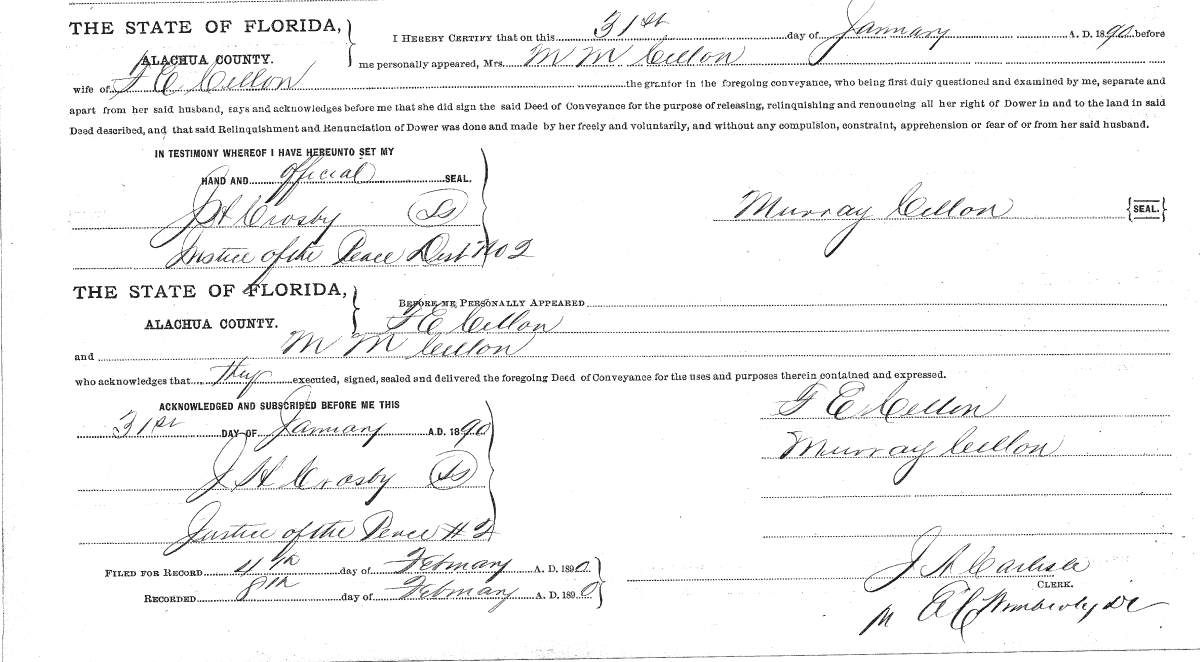 THE STATE OF FLORIDA,
ALACHUA COUNTY.
I HEREBY CERTIFY that on this 31st day of January A. D. 1890 before
me personally appeared, Mrs. M M Cellon
wife of F E Cellon the grantor in the foregoing conveyance, who being first duly questioned and examined by me, separate and
apart from her said husband, says and acknowledges before me that she did sign the said Deed of Conveyance for the purpose of releasing, relinquishing and renouncing all her right of Dower in and to the land in said
Deed described, and that said Relinquishment and Renunciation of Dower was done and made by her freely and voluntarily, and without any compulsion, constraint, apprehension or fear of or from her said husband.
IN TESTIMONY WHEREOF I HAVE HEREUNTO SET MY
HAND AND official SEAL.
J H Crosby Ls
Justice of the Peace Dist No 2
Murray Cellon {SEAL.}
THE STATE OF FLORIDA,
ALACHUA COUNTY.
BEFORE ME PERSONALLY APPEARED
F E Cellon
and M M Cellon
who acknowledges that they executed, signed, sealed and delivered the foregoing Deed of Conveyance for the uses and purposes therein contained and expressed.
ACKNOWLEDGED AND SUBSCRIBED BEFORE ME THIS
31st DAY OF January A.D. 1890
J H Crosby Ls
Justice of the Peace # 2
F E Cellon
Murray Cellon
FILED FOR RECORD 4th day of February A. D. 1890.
RECORDED 8th day of February A. D. 1890
J A Carlisle
CLERK.
E C Wimberly DC